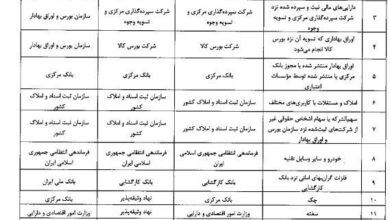 ۳ دارایی‌های مالی ثبت و سپرده شده نزد شرکت سپرده‌گذاری مرکزی و تسویه وجوه شرکت سپرده‌گذاری مرکزی و تسویه وجوه شرکت سپرده‌گذاری مرکزی و تسویه وجوه سازمان بورس و اوراق بهادار
۴ اوراق بهاداری که تسویه آن نزد بورس کالا انجام می‌شود شرکت بورس کالا شرکت بورس کالا سازمان بورس و اوراق بهادار
۵ اوراق بهادار منتشر شده با مجوز بانک مرکزی یا منتشر شده توسط مؤسسات اعتباری بانک مرکزی بانک مرکزی بانک مرکزی
۶ املاک و مستغلات با کاربری‌های مختلف سازمان ثبت اسناد و املاک کشور سازمان ثبت اسناد و املاک کشور سازمان ثبت اسناد و املاک کشور
۷ سهم‌الشرکه یا سهام اشخاص حقوقی غیر از شرکت‌های ثبت‌شده نزد سازمان بورس و اوراق بهادار سازمان ثبت اسناد و املاک کشور سازمان ثبت اسناد و املاک کشور سازمان ثبت اسناد و املاک کشور
۸ خودرو و سایر وسایل نقلیه فرماندهی انتظامی جمهوری اسلامی ایران فرماندهی انتظامی جمهوری اسلامی ایران فرماندهی انتظامی جمهوری اسلامی ایران
۹ فلزات گران‌بهای امانی نزد بانک کارگشایی بانک کارگشایی بانک کارگشایی بانک ملی ایران
۱۰ چک بانک مرکزی نهاد وثیقه‌پذیر بانک مرکزی
۱۱ سفته وزارت امور اقتصادی و دارایی نهاد وثیقه‌پذیر وزارت امور اقتصادی و دارایی